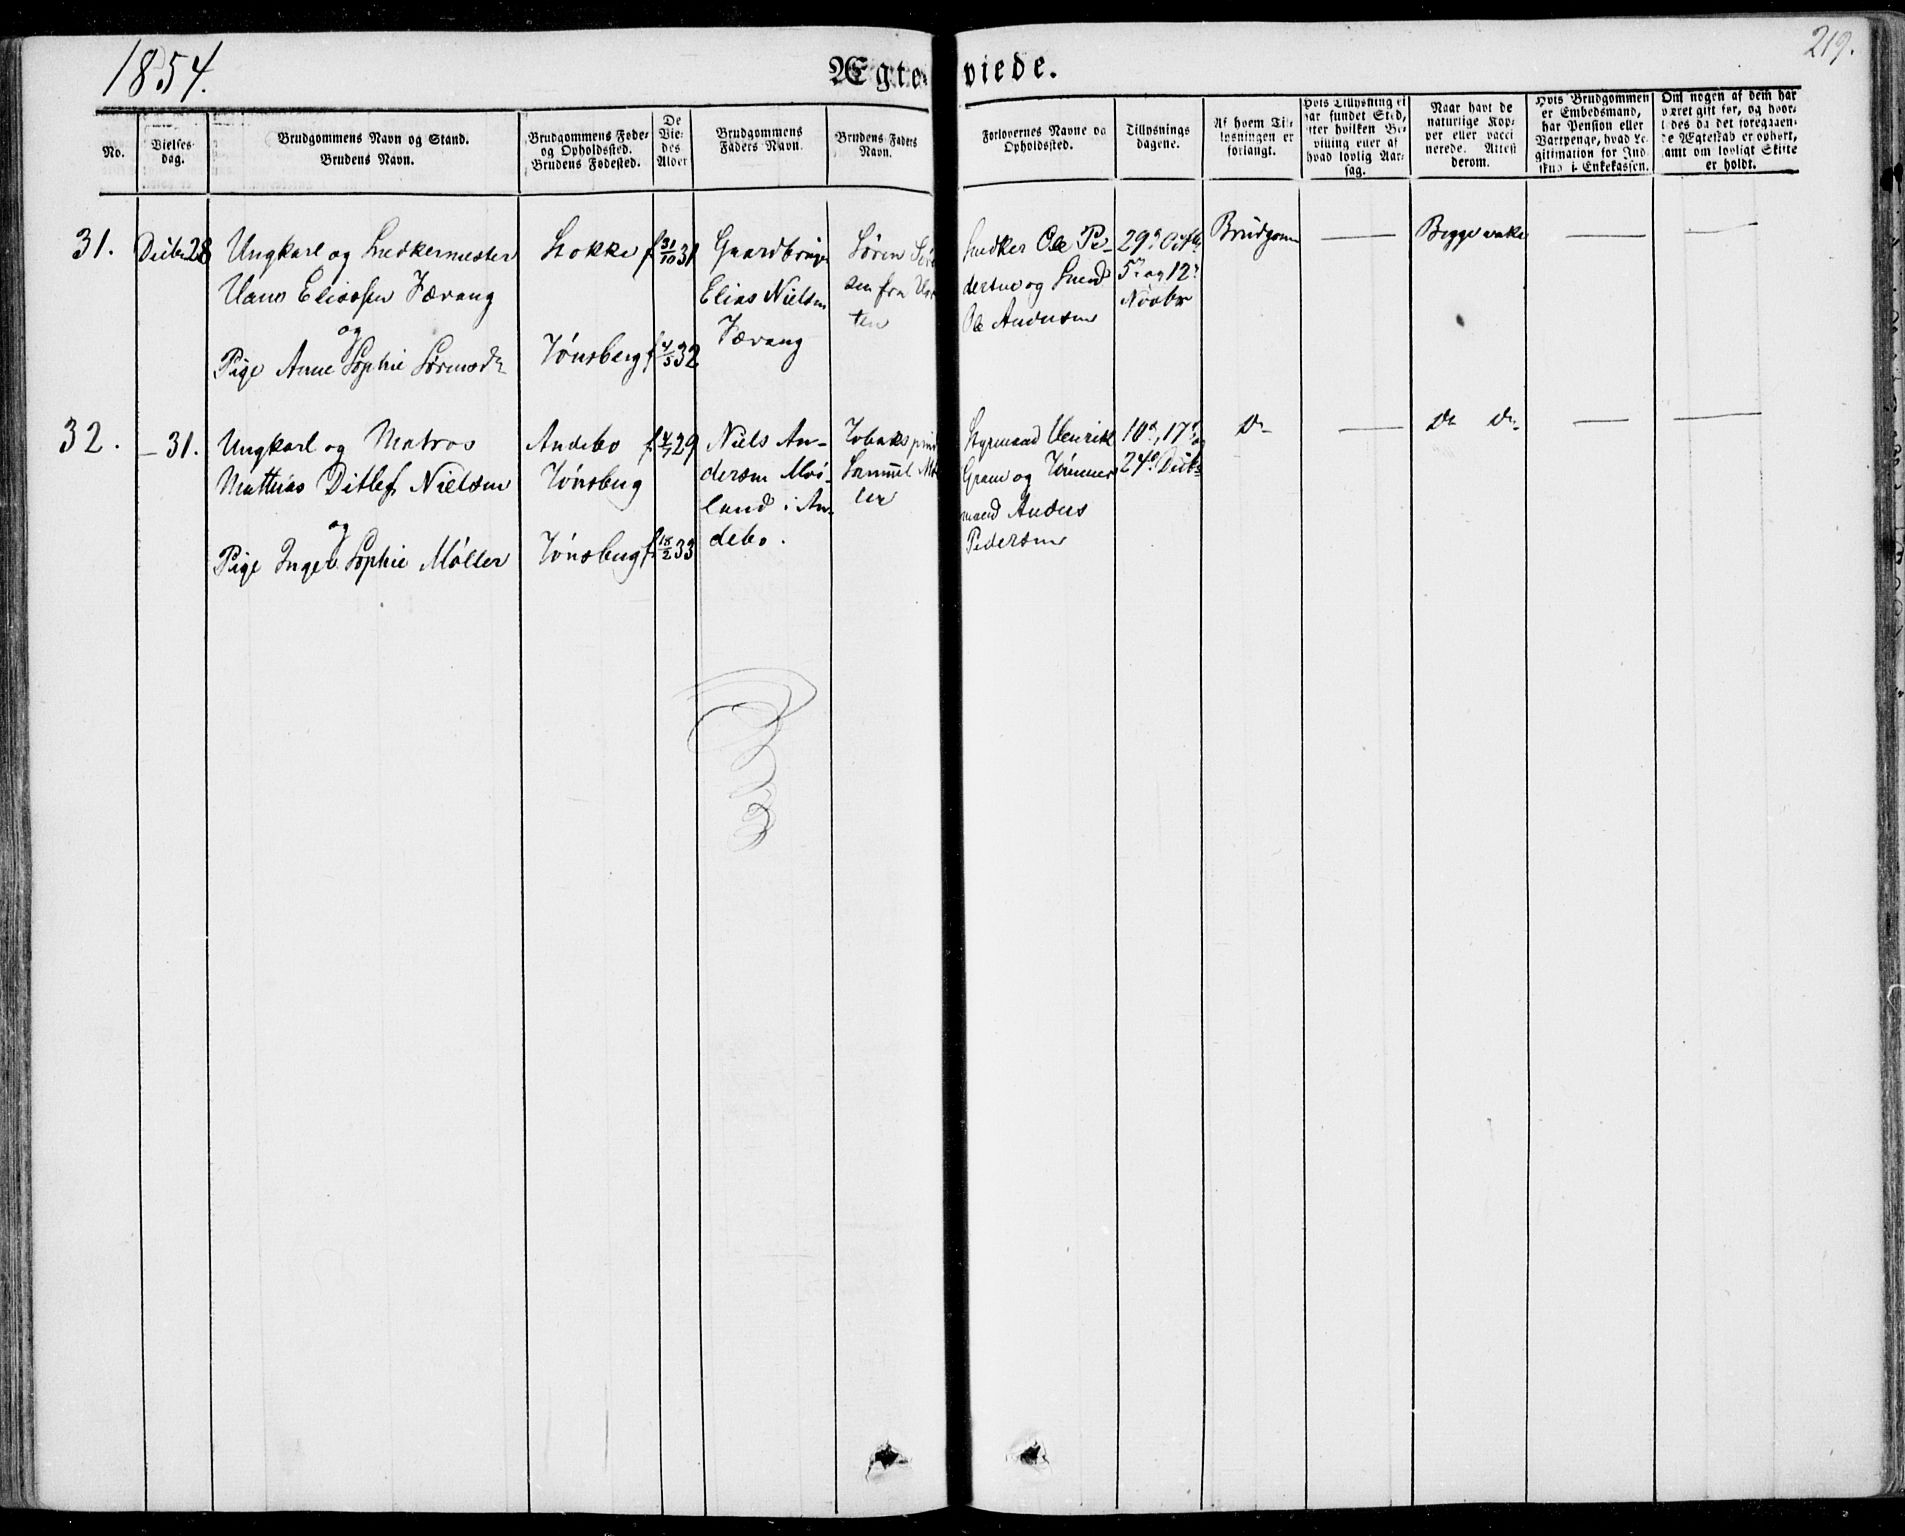 1854.
Ægte viede.
219.
No.
Vielses-
dag.
Brudgommens Navn og Stand.
Brudens Navn.
Brudgommens Føde-
og Opholdssted.
Brudens Fødested.
De
Vie-
des
Alder
Brudgommens
Faders Navn.
Brudens Faders
Navn.
Forlovernes Navne og
Opholdssted.
Tillysnings
dagene.
Af hvem Til-
lysningen er
forlangt.
Hvis Tillysning ei
har fundet Sted,
efter hvilken Be-
villing eller af
hvad lovlig Aar-
sag.
Naar havt de
naturlige Kop-
per eller vacci
nerede. Attest
derom.
Hvis Brudgommen
er Embedsmand,
har Pension eller
Vartpenge, hvad Le-
gitimation for Ind-
skud i Enkekassen.
Om nogen af dem har
været gift før, og hvor-
ledes da det foregaaen-
de Ægteskab er ophørt,
samt om lovligt Skifte
er holdt.
31.
Decbr 28
Ungkarl og Snedkermester
Hans Eliassen Færang
og
Pige Anne Sophie Sørensdr
Stokke
Tønsberg
f. 31/10 31
f. 4/5 32
Gaardbruger
Elias Nielsen
Færang
Søren
sen fra
ten
Snedker Ole Pe-
dersen og Smed
Ole Andersen
29d Octbr
5t og 12t
Novbr
Brudgom
—
Begge vakc
—
—
32.
– 31.
Ungkarl og Matros
Matthias Ditlef Nielsen
og
Pige Inger Sophie Møller
Andebo
Tønsberg
Tønsberg
f. 4/7 29
f. 18/2 33
Niels An-
dersen Møi-
land i An-
debo.
Tobaks
Samuel Møl
ler
Styrmand Henrik
Gram og Tømmer
mand Anders
Pedersen
10d, 17d og
24d Decbr
Do
—
Do Do
—
—